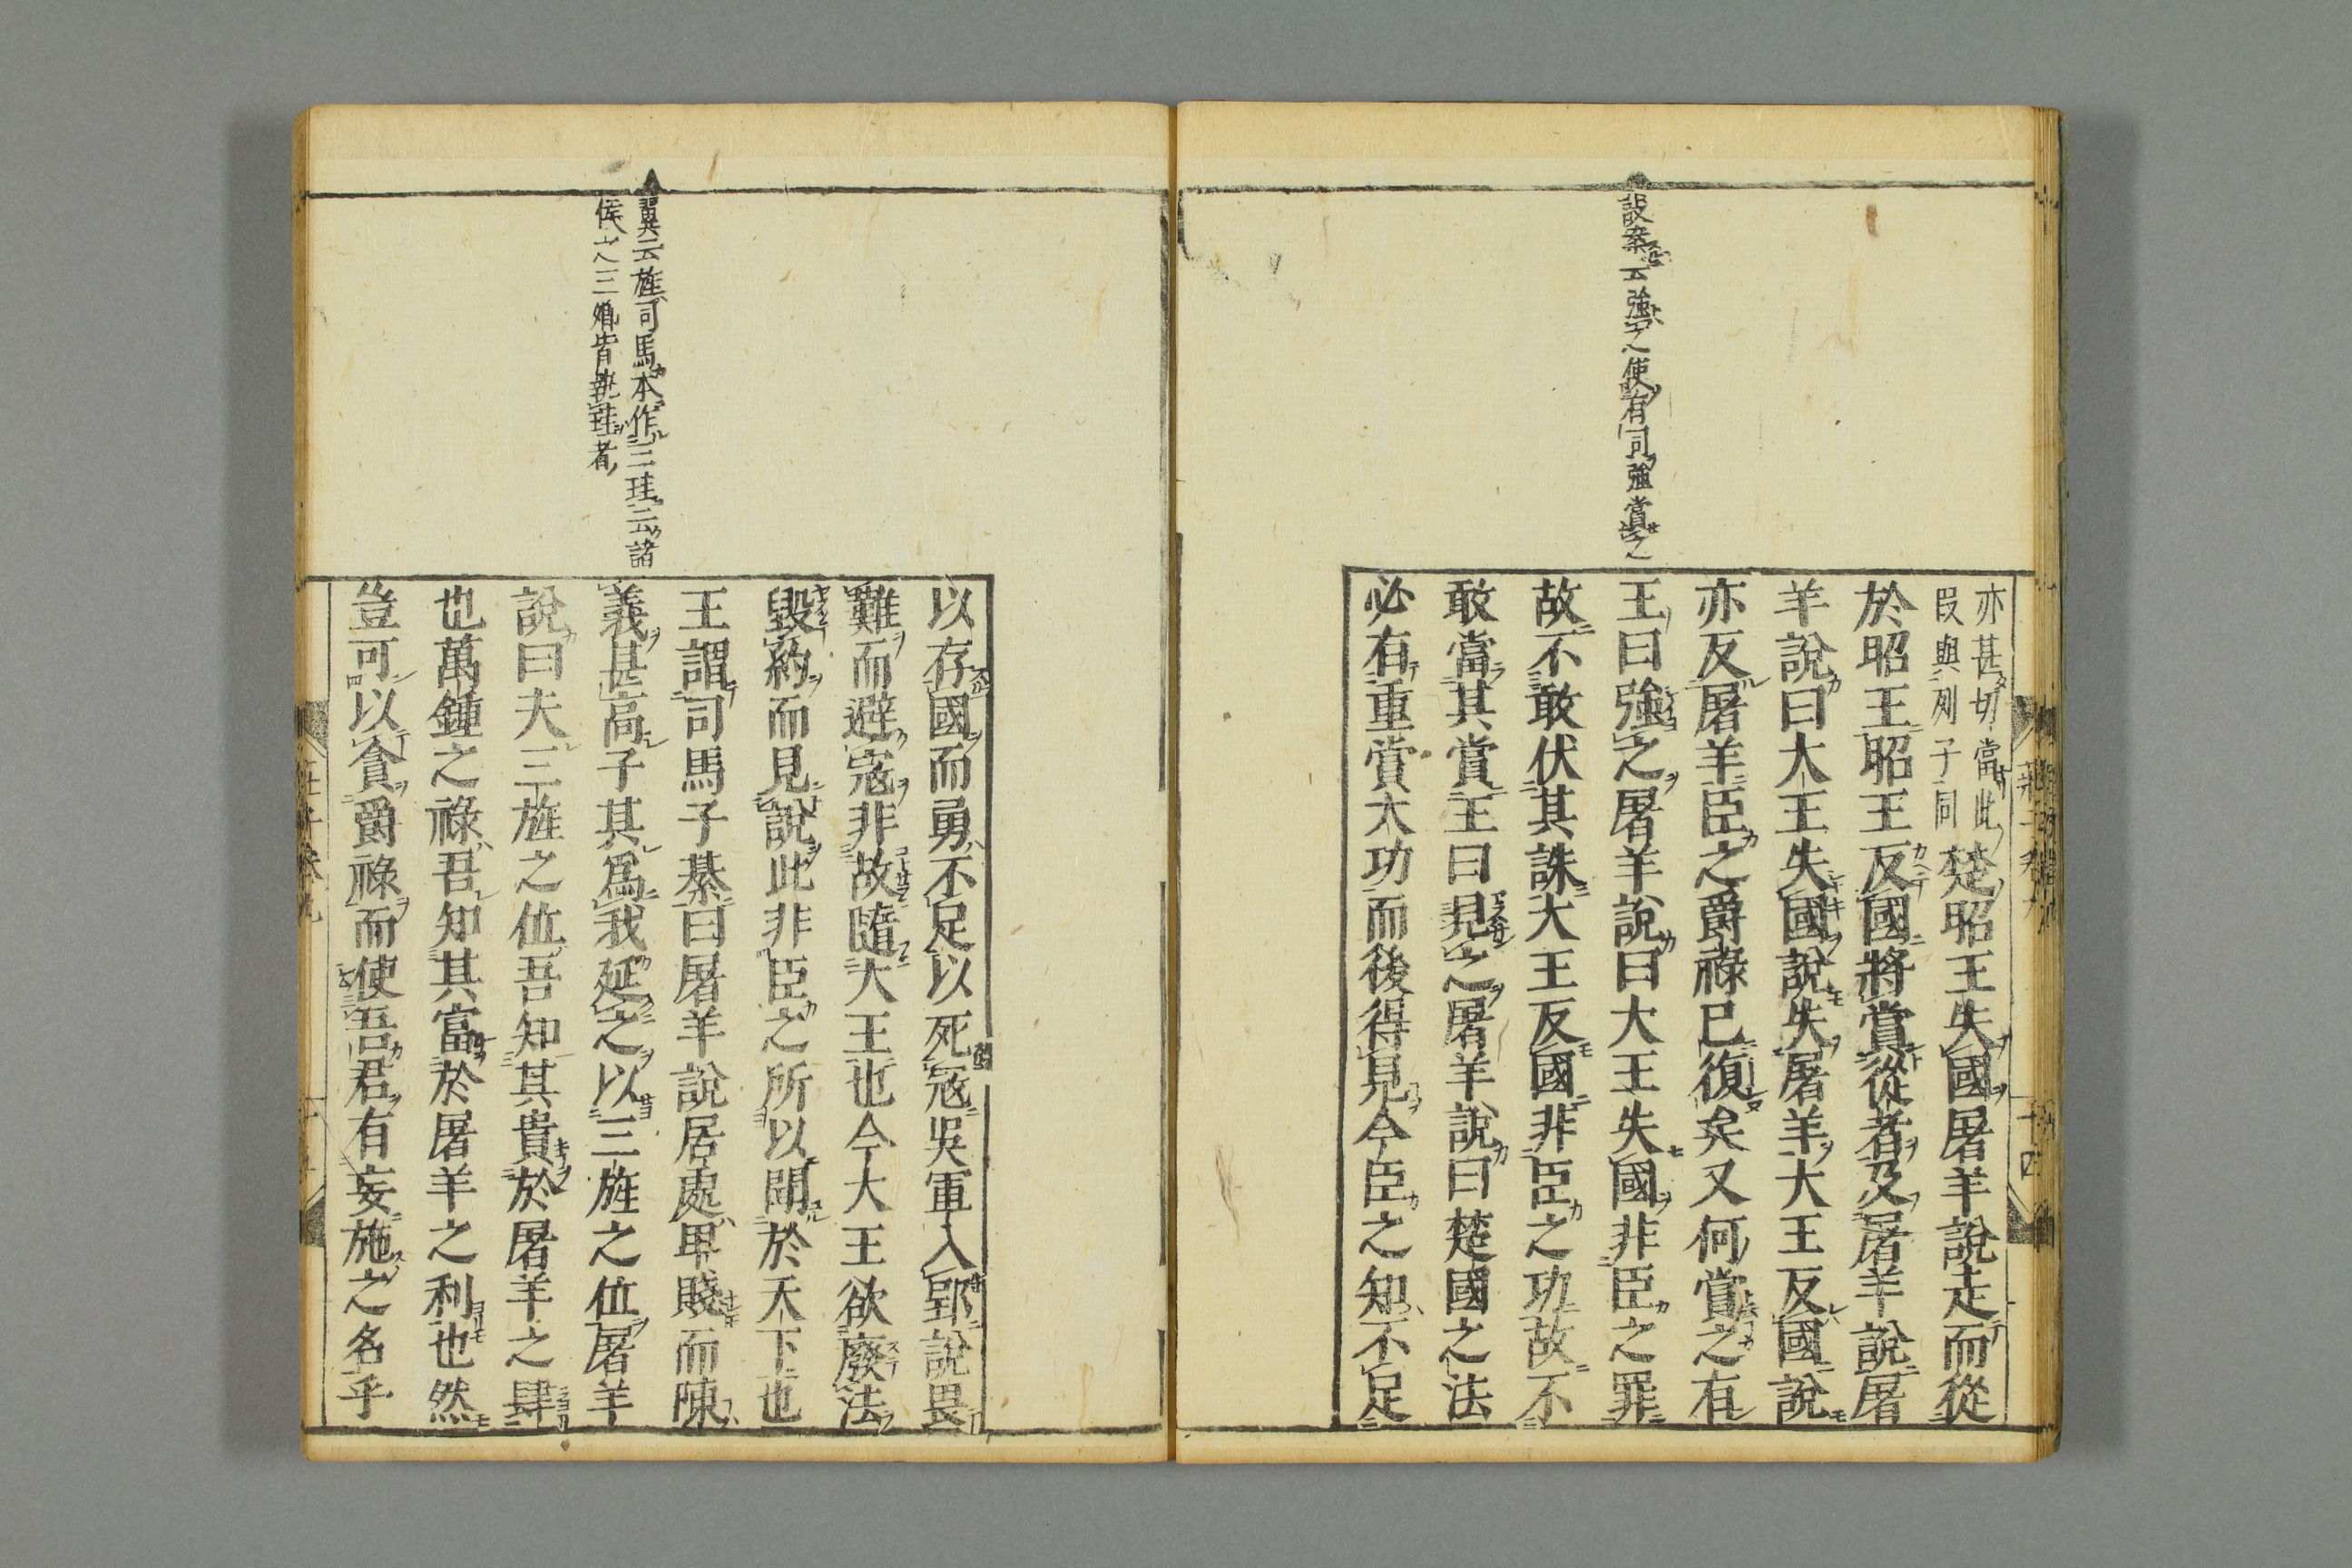 設案云強之使有司強賞之
亦甚切當此
段與列子同
楚昭王失國屠羊說走而從
於昭王昭王反國將賞從者及屠羊說屠
羊說曰大王失國說失屠羊大王反國說
亦反屠羊臣之爵祿已復矣又何賞之有
王曰強之屠羊說曰大王失國非臣之罪
故不敢伏其誅大王反國非臣之功故不
敢當其賞王曰見之屠羊說曰楚國之法
必有重賞大功而後得見今臣之知不足
翼云旌司馬本作三珪云諸
侯之三卿皆執珪者
以存國而勇不足以死寇吳軍入郢說畏
難而避寇非故隨大王也今大王欲廢法
毀約而見說此非臣之所以聞於天下也
王謂司馬子綦曰屠羊說居處卑賤而陳
義甚高子其爲我延之以三旌之位屠羊
說曰夫三旌之位吾知其貴於屠羊之肆
也萬鍾之祿吾知其富於屠羊之利也然
豈可以貪爵祿而使吾君有妄施之名乎